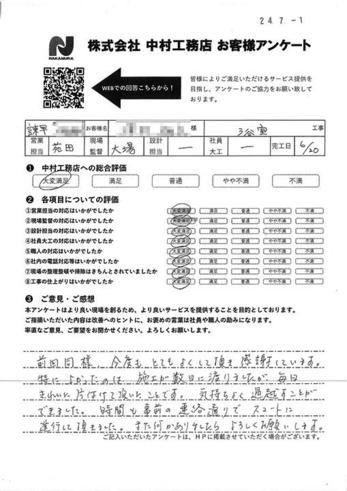 24.7-1
N
NAKAMURA
株式会社 中村工務店 お客様アンケート
WEBでの回答こちらから!
皆様によりご満足いただけるサービス提供を
目指し、アンケートのご協力をお願い致して
おります。
諫早 お客様名 様 工事
営業担当 苑田 現場監督 大場 設計担当 ー 社員大工 ー 完工日 6/20
❶ 中村工務店への総合評価
大変満足 満足 普通 やや不満 不満
❷ 各項目についての評価
①営業担当の対応はいかがでしたか 大変満足 満足 普通 やや不満 不満
②現場監督の対応はいかがでしたか 大変満足 満足 普通 やや不満 不満
③設計担当の対応はいかがでしたか 大変満足 満足 普通 やや不満 不満
④社員大工の対応はいかがでしたか 大変満足 満足 普通 やや不満 不満
⑤職人の対応はいかがでしたか 大変満足 満足 普通 やや不満 不満
⑥社内の電話対応等はいかがでしたか 大変満足 満足 普通 やや不満 不満
⑦現場の整理整頓や掃除はきちんとされていましたか 大変満足 満足 普通 やや不満 不満
⑧工事の仕上がりはいかがでしたか 大変満足 満足 普通 やや不満 不満
❸ ご意見・ご感想
本アンケートはより良い現場を創るため、より良いサービスを提供することを目的としております。
ご指摘いただいた内容は改善へのヒントに、お褒めの言葉は社員や職人の励みになります。
率直なご意見、ご要望をお聞かせください。よろしくお願いします。
前回同様に今度もとてもよくして頂き感謝しています。
特によかったのは施工が数日に渡りましたが毎日
きれいに片付けて頂いたことです。気持ちよく過ごすことが
できました。時間も事前の連絡通りでスムーズに
進行して頂きました。また何かありましたらよろしくお願いします。
ご記入いただいたアンケートは、HPに掲載させていただく場合がございます。